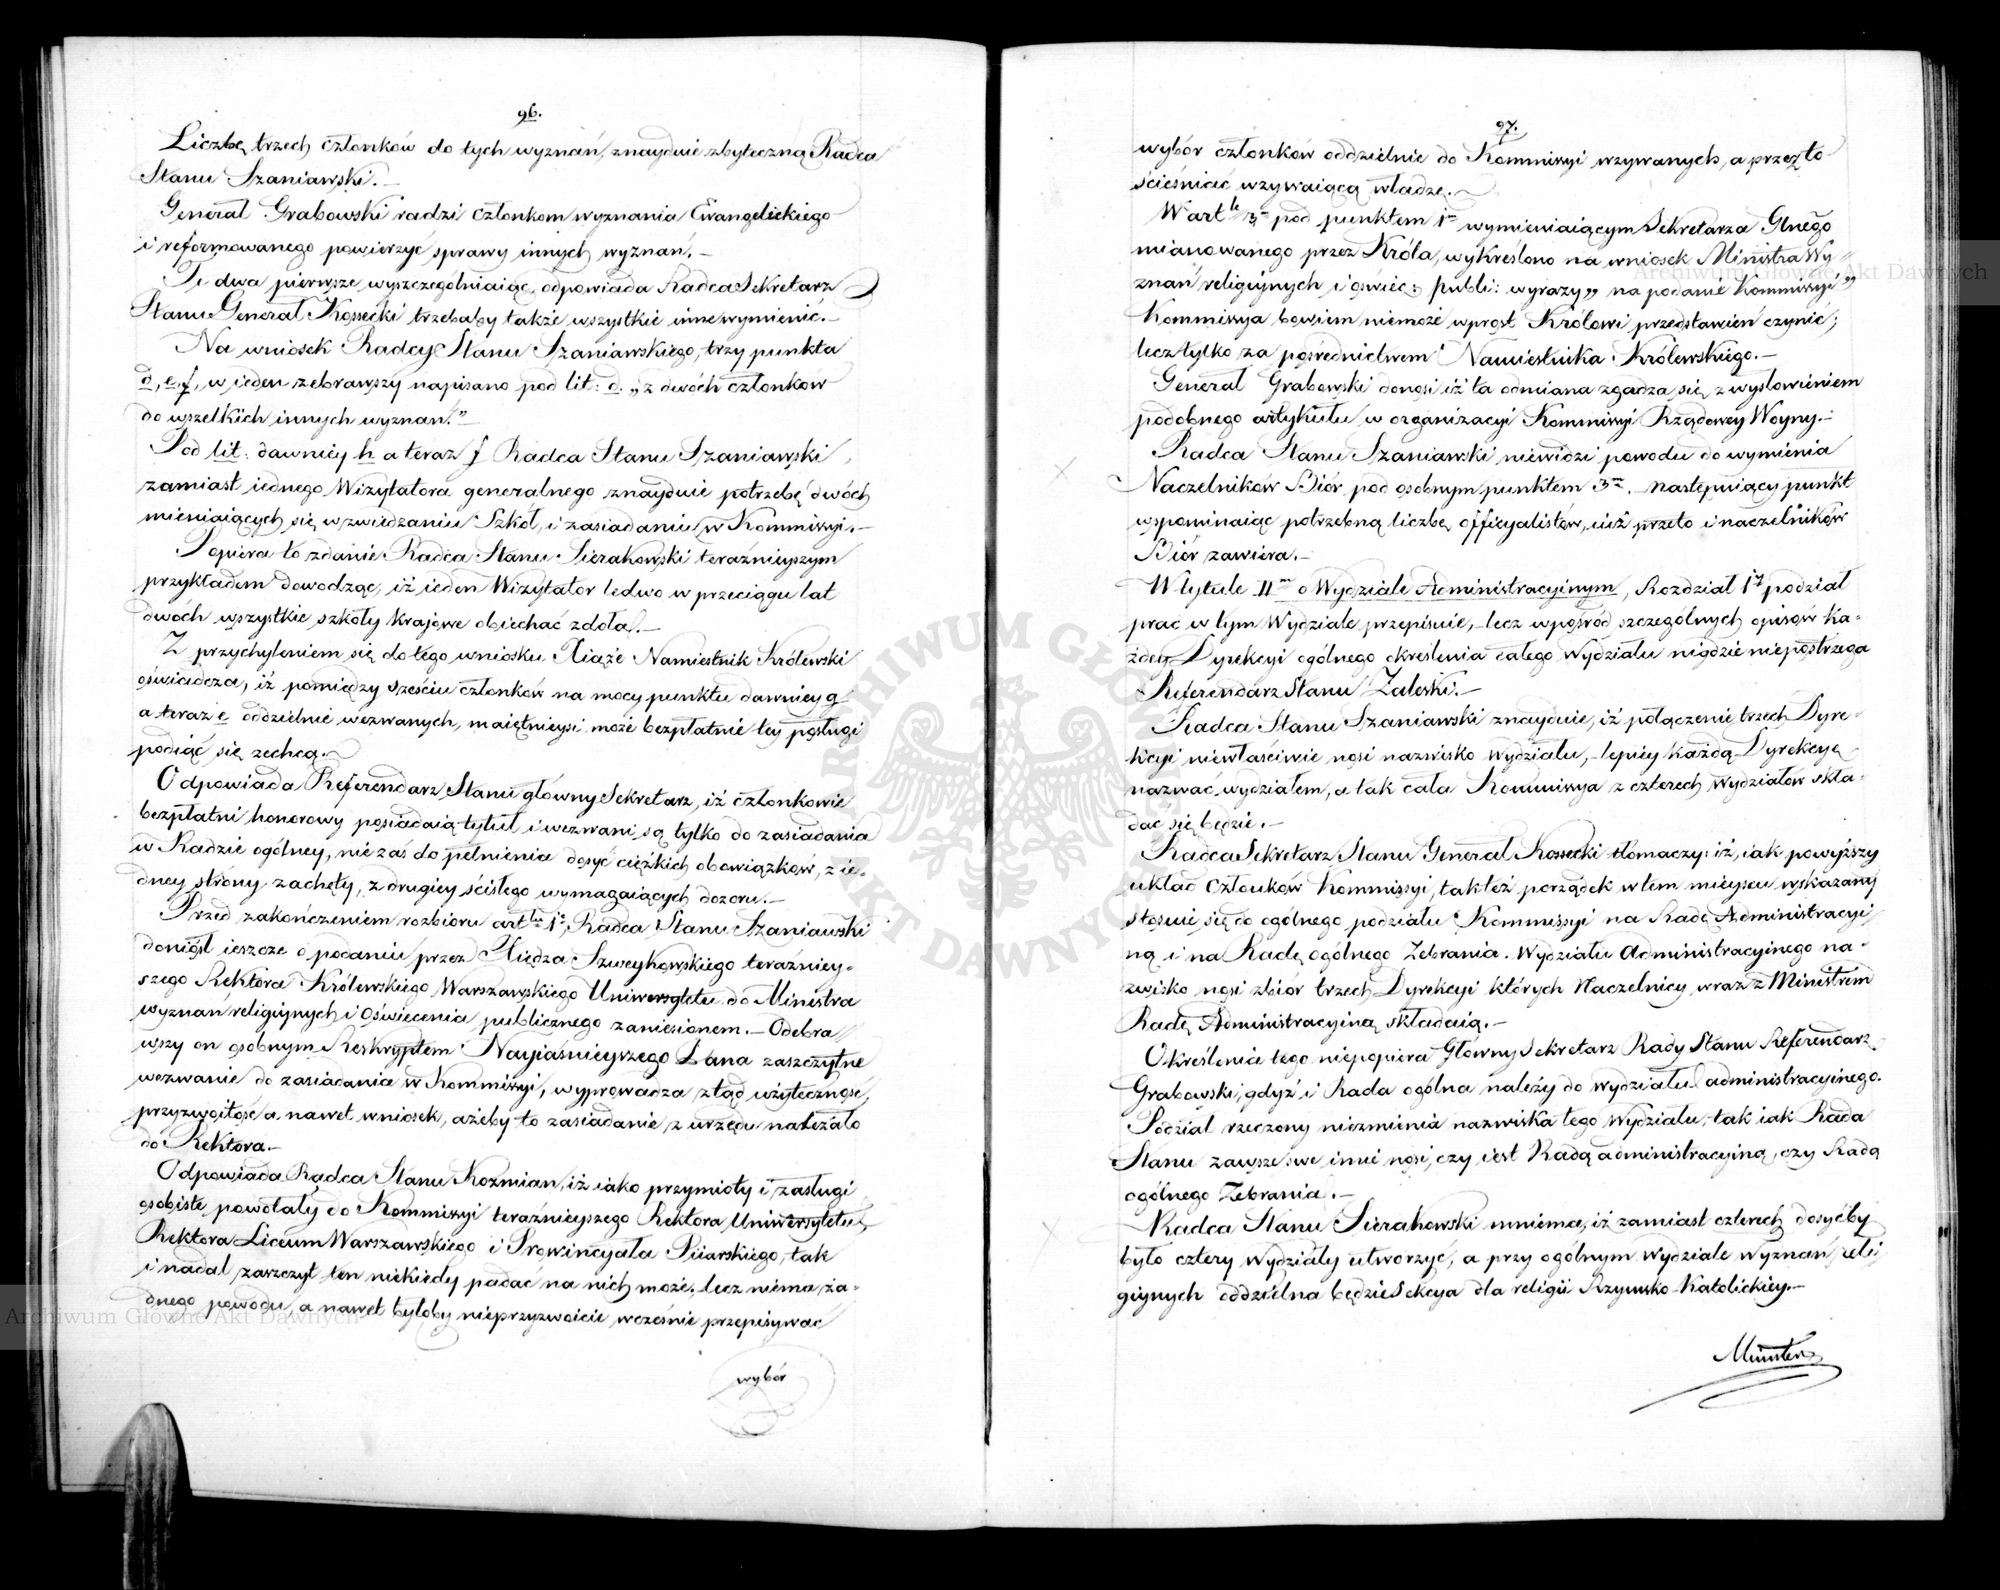 96.
Liczbę trzech członków do tych wyznań, znayduie zbyteczną Radca
Stanu Szaniawski.—
Generał Grabowski radzi członkom wyznania Ewangelickiego
i reformowanego powierzyć sprawy innych wyznań.—
Te dwa pierwsze wyszczególniaiąc, odpowiada Radca Sekretarz
Stanu Generał Kossecki trzebaby także wszystkie inne wymienić.—
Na wniosek Radcy Stanu Szaniawskiego, trzy punkta
d, e, f, w ieden zebrawszy napisano pod lit: d. „z dwóch członków
do wszelkich innych wyznań."
Pod lit: dawniey h a teraz f Radca Stanu Szaniawski,
zamiast iednego Wizytatora generalnego znayduie potrzebę dwóch
mieniaiących się w zwiedzaniu Szkół, i zasiadaniu w Kommissyi.—
Popiera to zdanie Radca Stanu Sierakowski teraźnieyszym
przykładem dowodząc, iż ieden Wizytator ledwo w przeciągu lat
dwóch wszystkie szkoły krajowe obiechać zdoła.—
Z przychyleniem się do tego wniosku Xiąże Namiestnik Królewski
oświadcza, iż pomiędzy sześciu członków na mocy punktu dawniey g
a teraz e oddzielnie wezwanych, maiętnieysi może bezpłatnie tey posługi
podiąć się zechcą.—
Odpowiada Referendarz Stanu główny Sekretarz, iż członkowie
bezpłatni honorowy posiadaią tytuł i wezwani są tylko do zasiadania
w Radzie ogólney, nie zaś do pełnienia dosyć ciężkich obowiązków, z ie-
dney strony zachęty, z drugiey ścisłego wymagaiących dozoru.—
Przed zakończeniem rozbioru art<sup>łu</sup> 1º, Radca Stanu Szaniawski
doniósł ieszcze o podaniu przez Xiędza Szweykowskiego teraźniey-
szego Rektora Królewskiego Warszawskiego Uniwersytetu do Ministra
wyznań religiynych i Oświecenia publicznego zaniesionem.— Odebra-
wszy on osobnym Reskryptem Nayiaśnieyszego Pana zaszczytne
wezwanie do zasiadania w Kommissyi, wyprowadza ztąd użyteczność,
przyzwoitość a nawet wniosek, ażeby to zasiadanie z urzędu należało
do Rektora.—
Odpowiada Radca Stanu Kozmian, iż iako przymioty i zasługi
osobiste powołały do Kommissyi teraźnieyszego Rektora Uniwersytetu,
Rektora Liceum Warszawskiego i Prowincyała Piiarskiego, tak
i nadal zaszczyt ten niekiedy padać na nich może, lecz niema ża-
dnego powodu, a nawet byłoby nieprzyzwoicie wcześnie przepisywać
wybór
97.
wybór członków oddzielnie do Kommissyi wzywanych, a przez to
ścieśniać wzywaiącą władzę.—
W art<sup>le</sup> 3<sup>m</sup> pod punktem 1<sup>m</sup> wymieniaiącym Sekretarza Glnego
mianowanego przez Króla, wykreślono na wniosek Ministra Wy-
znań religiynych i oświec: publi: wyrazy „na podanie Kommissyi"
Kommissya bowiem niemoże wprost Królowi przedstawień czynić;
lecz tylko za pośrednictwem Namiestnika Królewskiego.—
Generał Grabowski donosi iż ta odmiana zgadza się z wysłowieniem
podobnego artykułu w organizacyi Kommissyi Rządowey Woyny.—
Radca Stanu Szaniawski niewidzi powodu do wymienia
Naczelników Biór pod osobnym punktem 3<sup>m</sup>. następuiący punkt
wspominaiąc potrzebną liczbę officyalistów, iuż przeto i naczelników
Biór zawiera.—
W tytule II<sup>m</sup> o Wydziale Administracyinym, Rozdział 1<sup>y</sup> podział
prac w tym Wydziale przepisuie, lecz wpośród szczególnych opisów ka-
żdey Dyrekcyi ogólnego określenia całego Wydziału nigdzie niepostrzega
Referendarz Stanu Zaleski.—
Radca Stanu Szaniawski znayduie, iż połączenie trzech Dyre-
kcyi niewłaściwie nosi nazwisko wydziału, lepiey każdą Dyrekcyę
nazwać wydziałem, a tak cała Kommissya z czterech wydziałów skła-
dać się będzie.—
Radca Sekretarz Stanu Generał Kossecki tłomaczy: iż, iak powyższy
układ Członków Kommissyi, takteż porządek w tem mieyscu wskazany
stosuie się do ogólnego podziału Kommissyi na Radę Administracyi-
ną i na Radę ogólnego Zebrania. Wydziału Administracyinego na-
zwisko nosi zbiór trzech Dyrekcyi których Naczelnicy wraz z Ministrem
Radę Administracyiną składaią.—
Określenia tego niepopiera Główny Sekretarz Rady Stanu Referendarz
Grabowski, gdyż i Rada ogólna należy do wydziału administracyinego.
Podział rzeczony niezmienia nazwiska tego Wydziału, tak iak Rada
Stanu zawsze swe imie nosi, czy iest Radą administracyiną, czy Radą
ogólnego Zebrania.—
Radca Stanu Sierakowski mniema, iż zamiast czterech dosyćby
było cztery wydziały utworzyć, a przy ogólnym wydziale wyznań reli-
giynych oddzielna będzie Sekcya dla religii Rzymsko-Katolickiey.—
Minister
ARCHIWUM GŁÓWNE AKT DAWNYCH
Archiwum Główne Akt Dawnych
Archiwum Główne Akt Dawnych